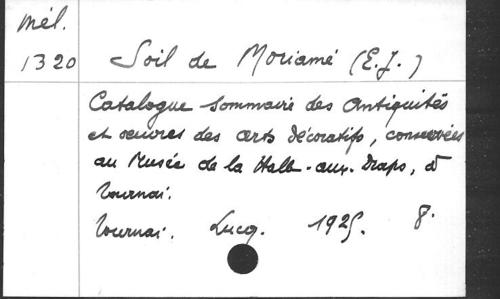 Mél.
1320
Soil de Moriamé (E.J.)
Catalogue sommaire des Antiquités
et œuvres des arts décoratifs, conservées
au Musée de la Halle-aux-Draps, à
Tournai.
Tournai. Lucq. 1925. 8.